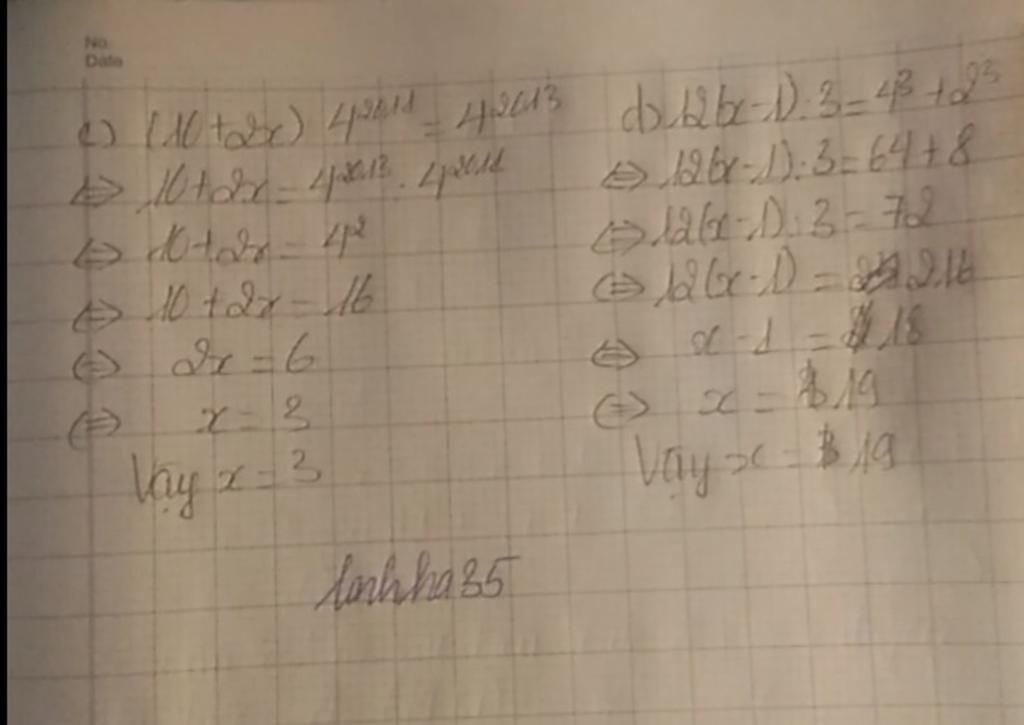 No.
Date
c) (10+2x) 4²⁰¹¹ = 4²⁰¹³
⇔ 10+2x = 4²⁰¹³ : 4²⁰¹¹
⇔ 10+2x = 4²
⇔ 10+2x = 16
⇔ 2x = 6
⇔ x = 3
Vậy x = 3
d) 12(x-1):3 = 4³+2³
⇔ 12(x-1):3 = 64+8
⇔ 12(x-1):3 = 72
⇔ 12(x-1) = 216
⇔ x-1 = 18
⇔ x = 19
Vậy x = 19
linhha35